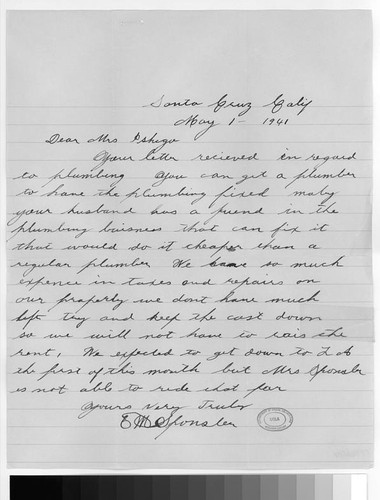 Santa Cruz Calif
May 1 - 1941
Dear Mrs Ishigo
Your letter recieved in regard
to plumbing You can get a plumber
to have the plumbing fixed maby
your husband has a friend in the
plumbing buisness that can fix it
that would do it cheaper than a
regular plumber We have so much
expence in taxes and repairs on
our property we dont have much
left try and keep the cost down
so we will not have to rais the
rent, We expected to get down to L A
the first of this month but Mrs Sponsler
is not able to ride that far
Yours Very Truly
E M Sponsler